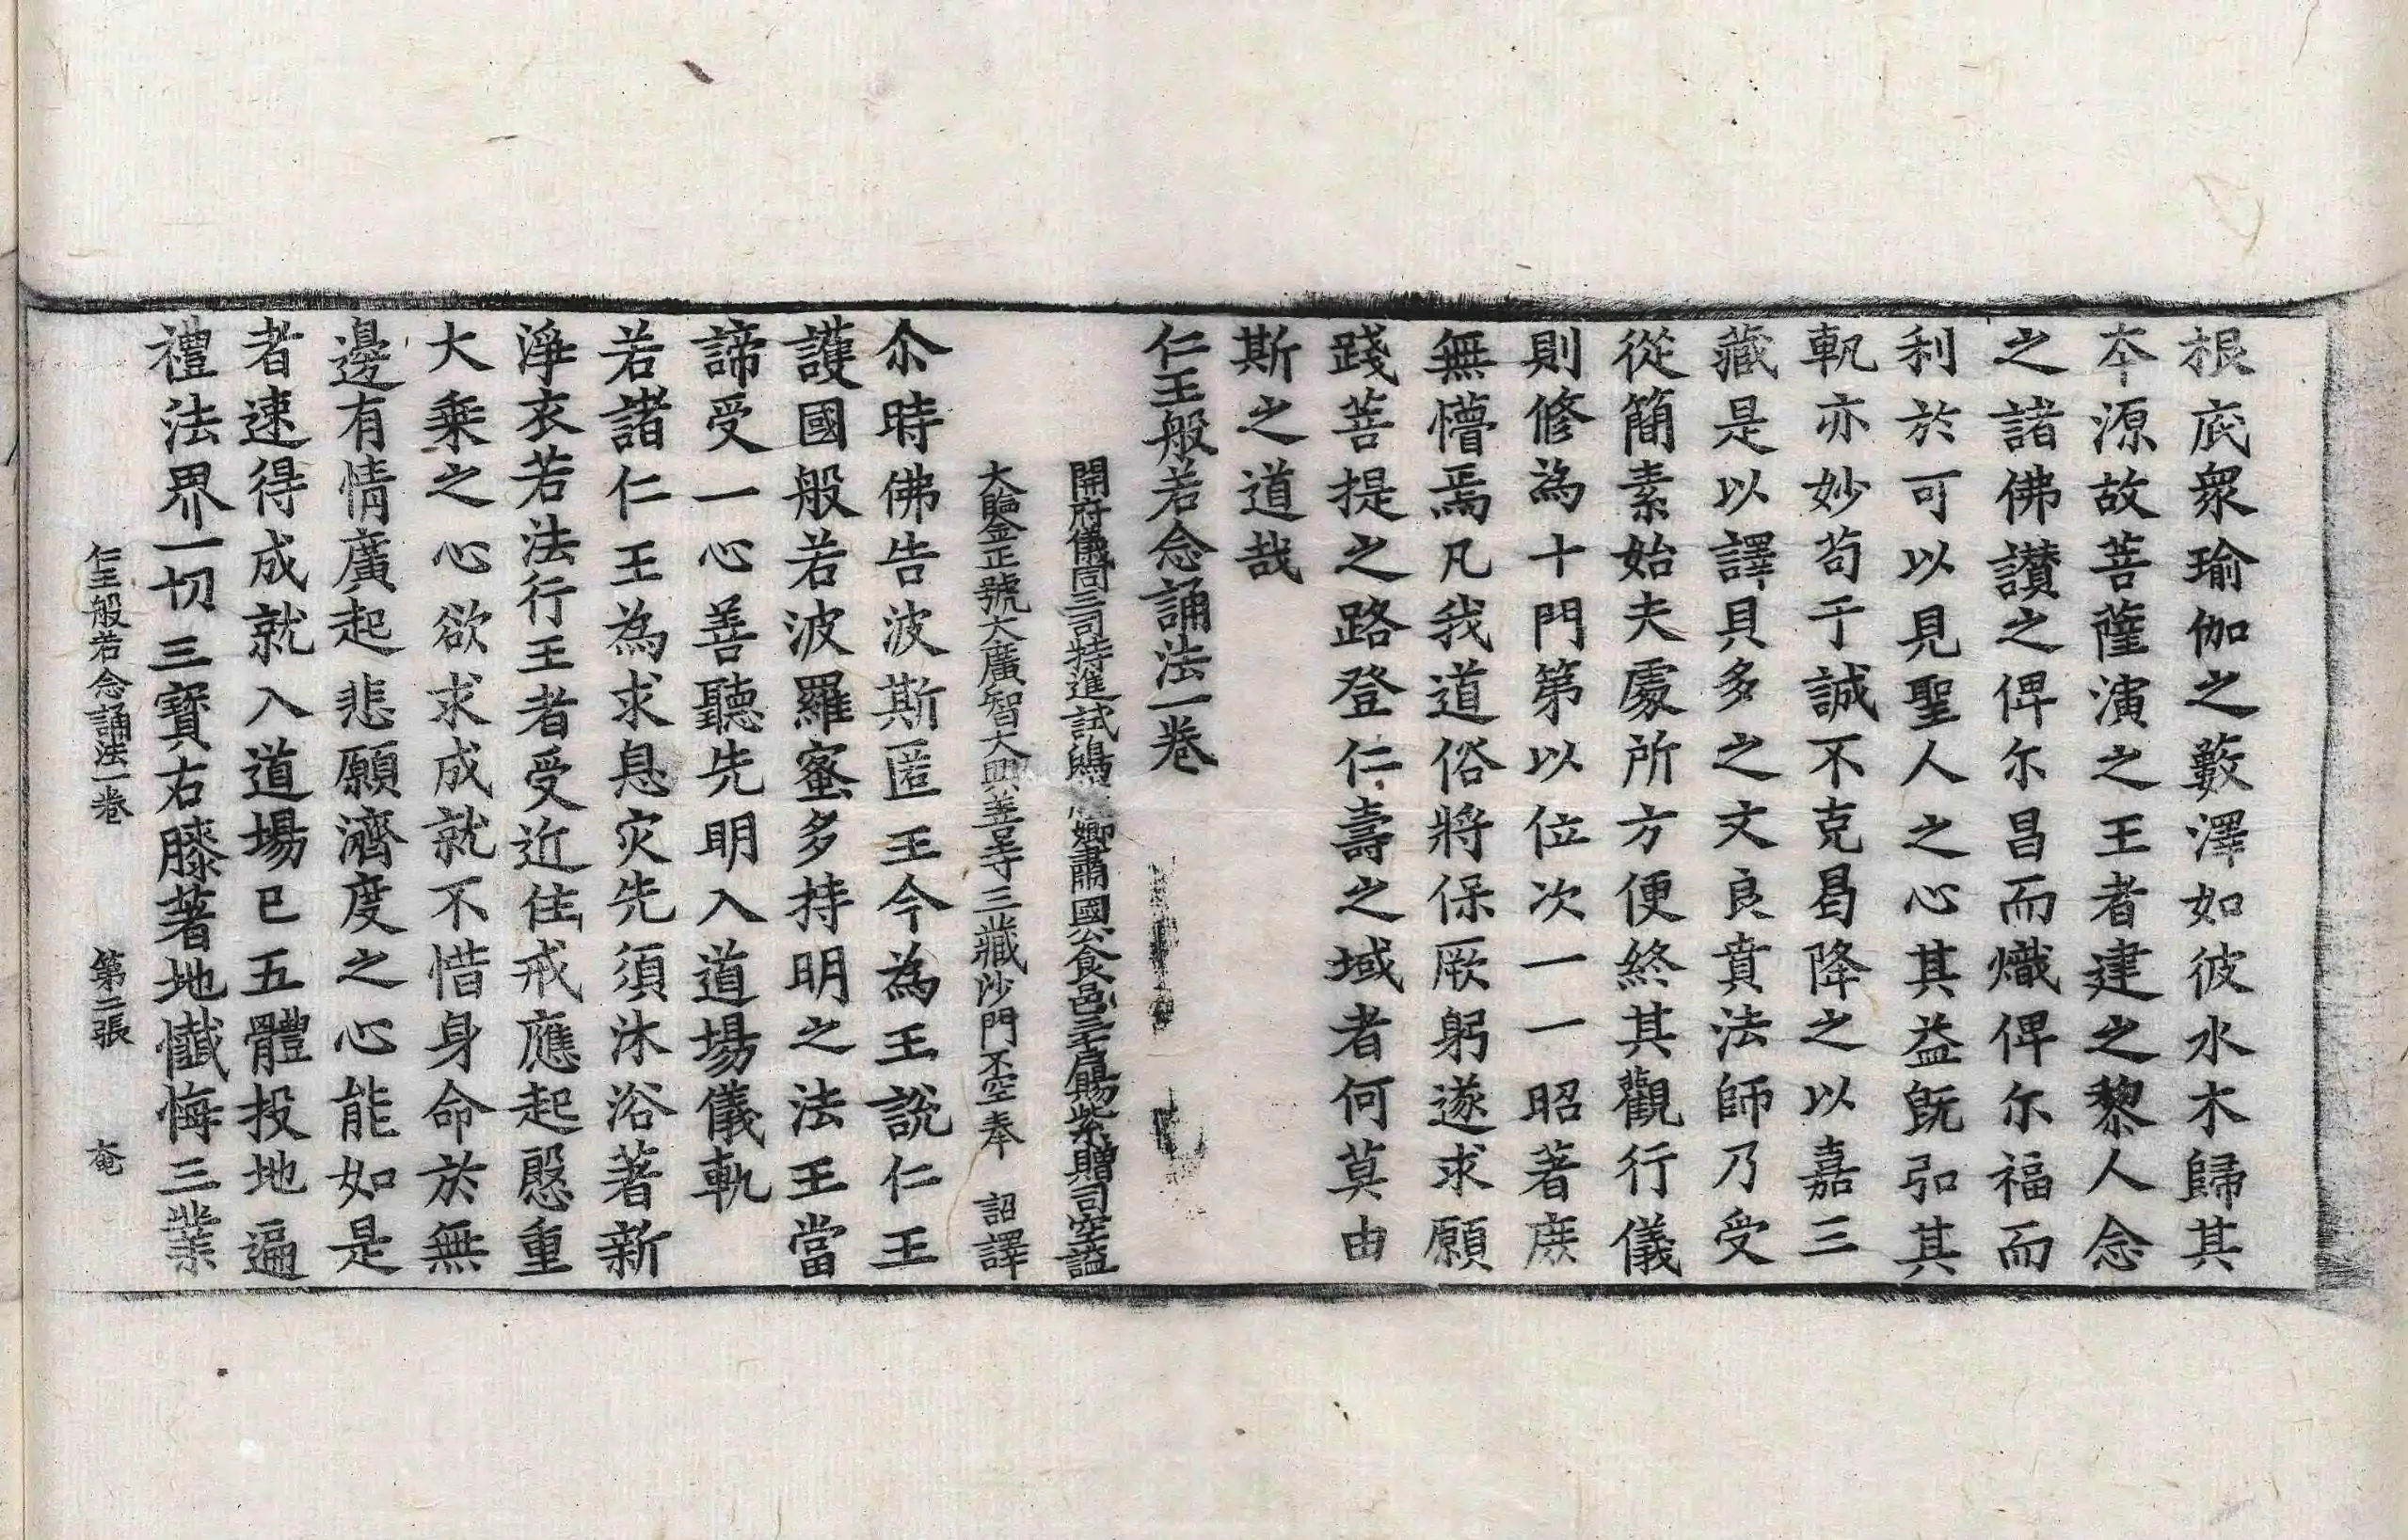 根底衆瑜伽之藪澤如彼水木歸其
本源故菩薩演之王者建之黎人念
之諸佛讃之俾尓昌而熾俾尓福而
利於可以見聖人之心其益旣弘其
軌亦妙苟于誠不克曷降之以嘉三
藏是以譯貝多之文良賁法師乃受
從簡素始夫處所方便終其觀行儀
則修為十門第以位次一一昭著庶
無懵焉凡我道俗將保厥躬遂求願
踐菩提之路登仁壽之域者何莫由
斯之道哉
仁王般若念誦法一卷
開府儀同三司特進試鴻卿肅國公食邑三千戶賜紫贈司空謚
大鑒正號大廣智大興善寺三藏沙門不空奉 詔譯
尒時佛告波斯匿王今為王說仁王
護國般若波羅蜜多持明之法王當
諦受一心善聽先明入道場儀軌
若諸仁王為求息灾先須沐浴著新
淨衣若法行王者受近住戒應起慇重
大乘之心欲求成就不惜身命於無
邊有情廣起悲願濟度之心能如是
者速得成就入道場已五體投地遍
禮法界一切三寶右膝著地懺悔三業
仁王般若念誦法一卷 第二張 奄